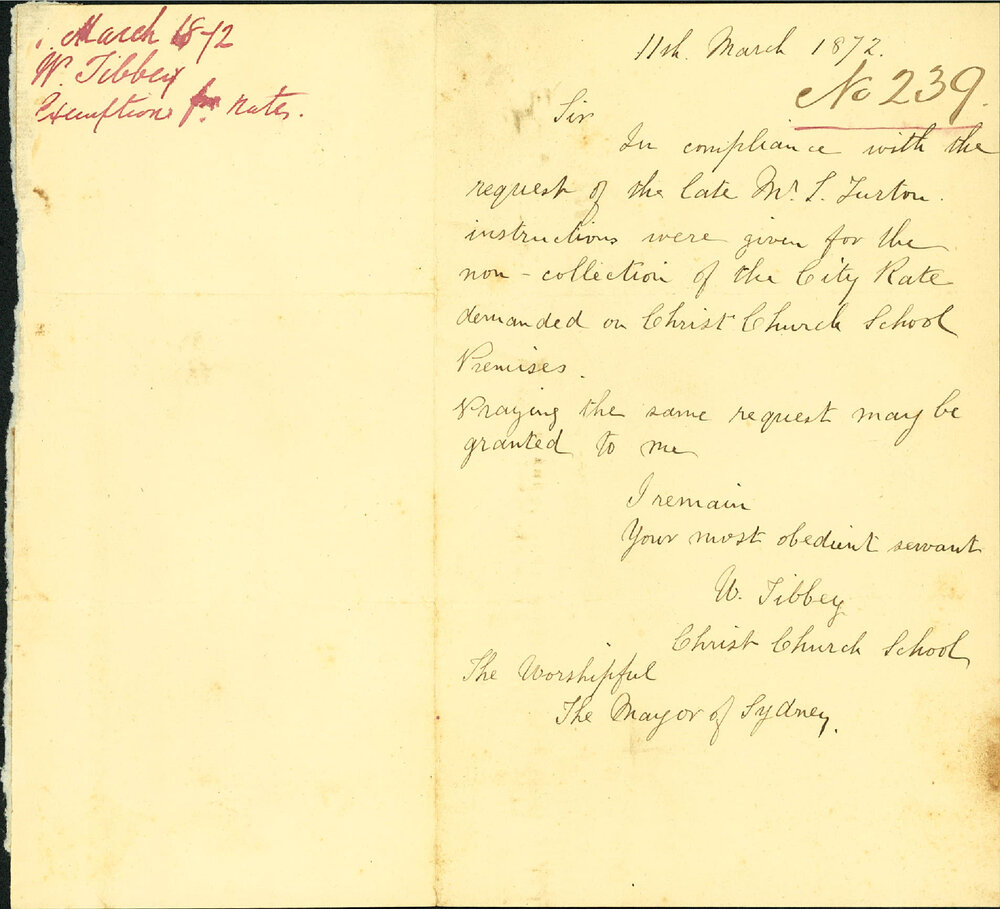 March 1872
W. Tibbey
Exemption from Rates.
11th. March 1872.
No 239.
Sir
In compliance with the
request of the late Mr. S. Turton.
instructions were given for the
non-collection of the City Rate
demanded on Christ Church School
Premises.
Praying the same request may be
granted to me
I remain
Your most obedient servant
W. Tibbey
Christ Church School
The Worshipful
The Mayor of Sydney.